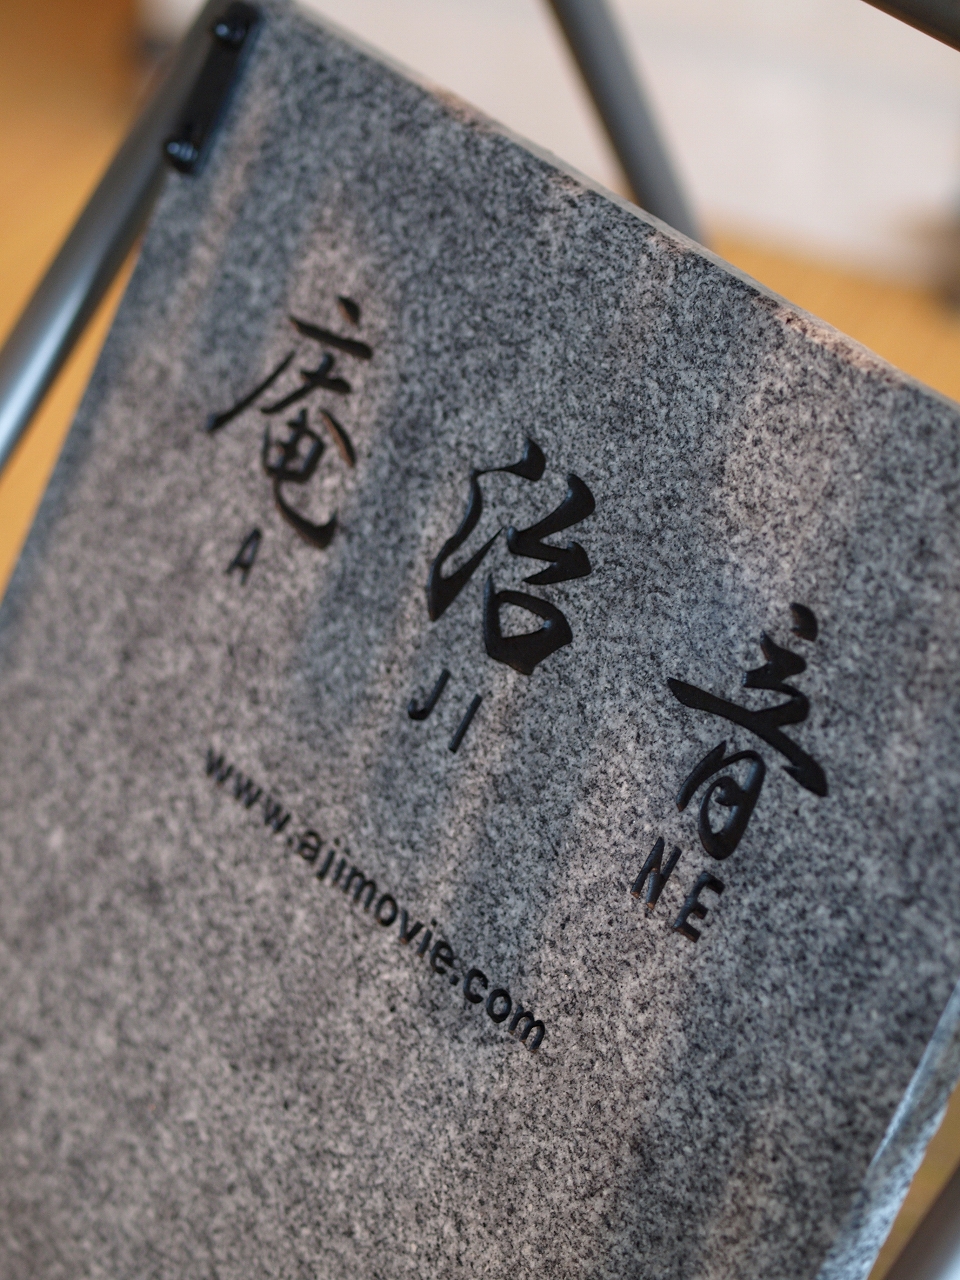 庵治音
A JI NE
www.ajimovie.com